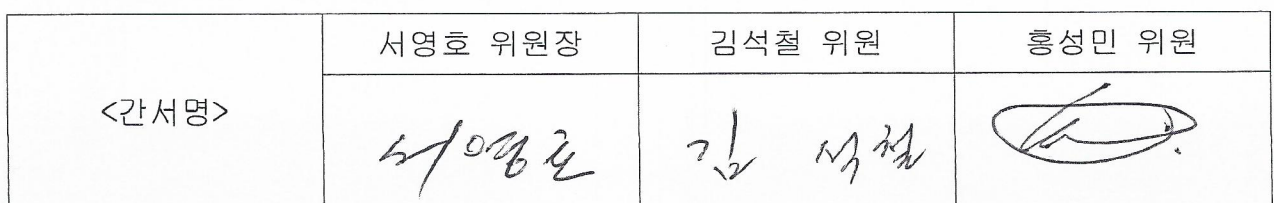 서영호 위원장 김석철 위원 홍성민 위원
<간서명>
서영호 김 석철